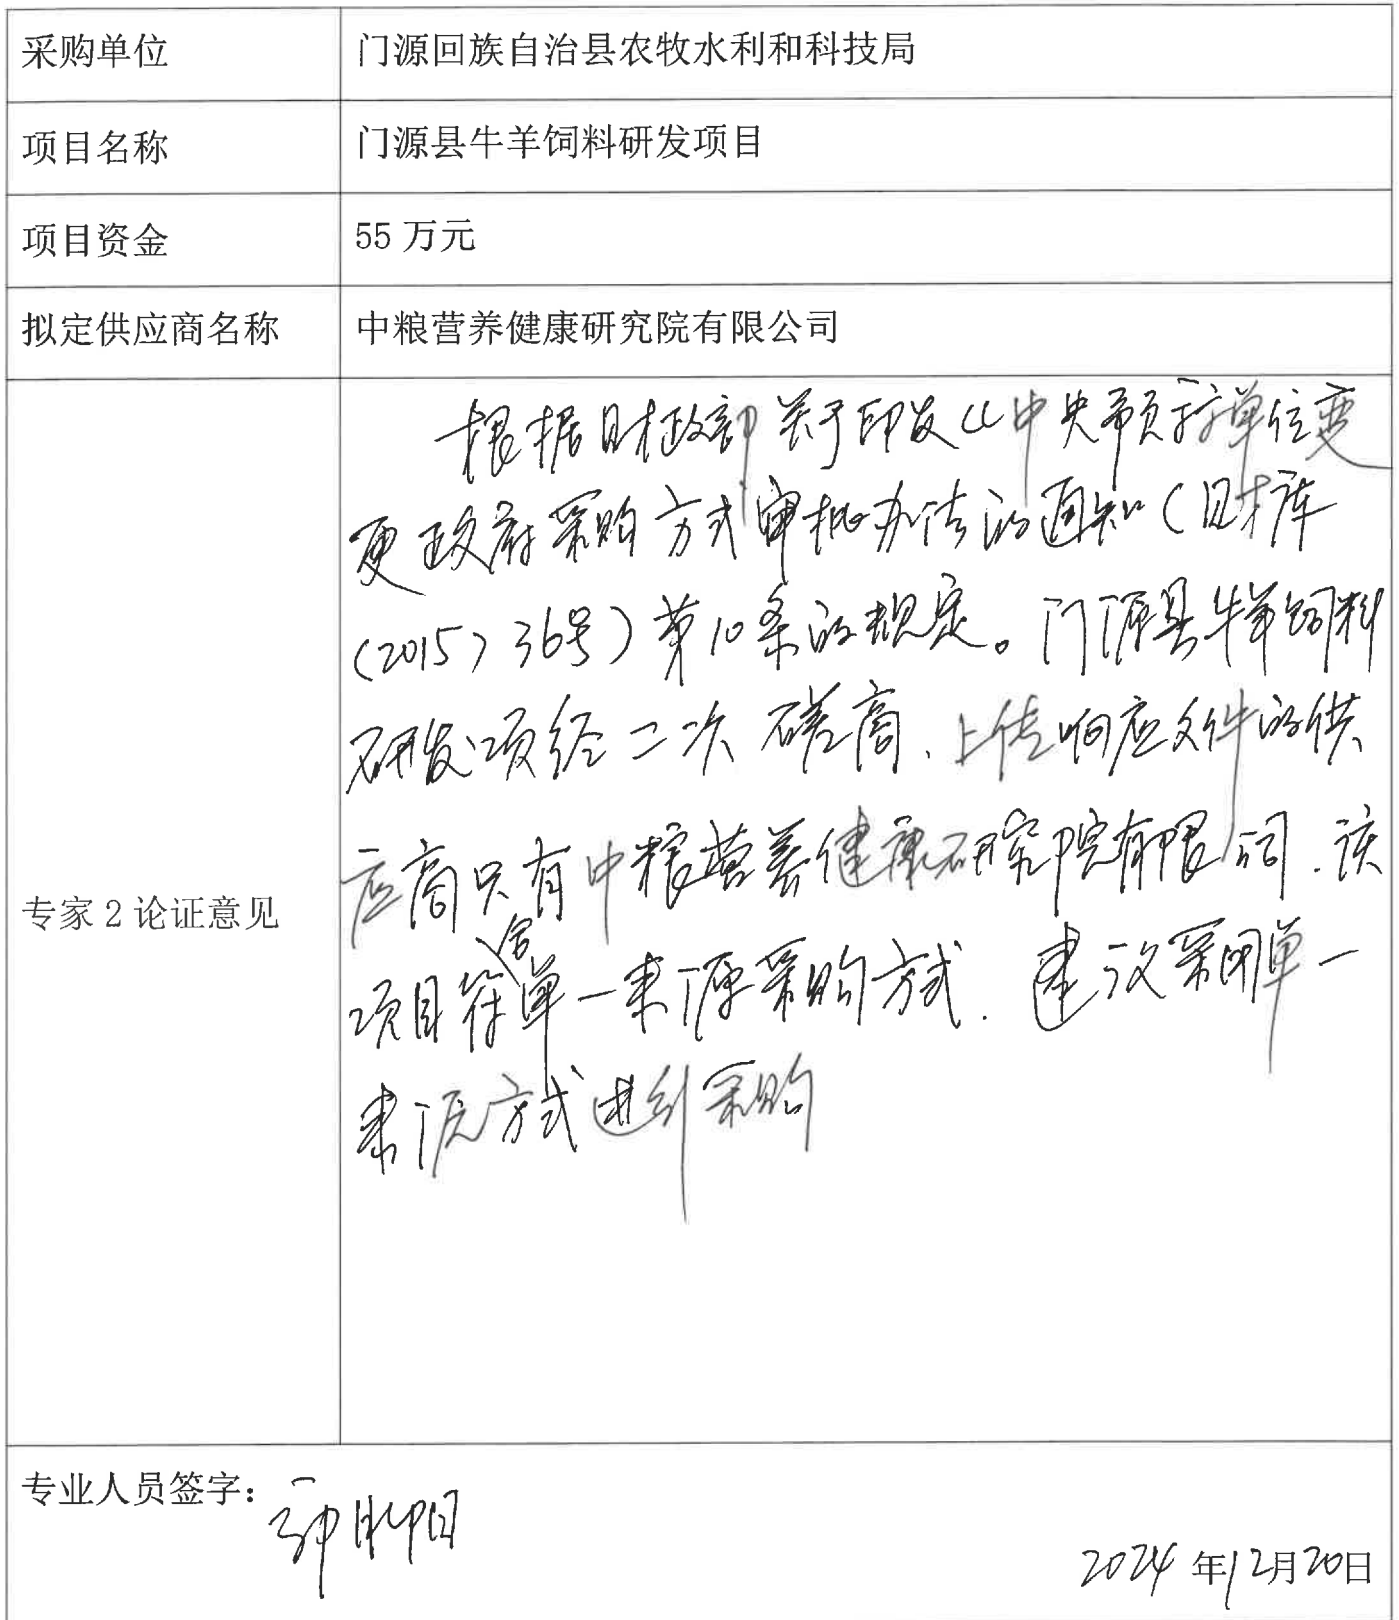 采购单位 门源回族自治县农牧水利和科技局
项目名称 门源县牛羊饲料研发项目
项目资金 55万元
拟定供应商名称 中粮营养健康研究院有限公司
专家2论证意见
根据财政部关于印发《中央预算单位变
更政府采购方式审批办法的通知(财库
(2015)36号)第10条的规定。门源县牛羊饲料
研发项经二次磋商、上传响应文件的供
应商只有中粮营养健康研究院有限公司.该
项目符合单一来源采购方式.建议采用单一
来源方式进行采购
专业人员签字:
2024年12月20日